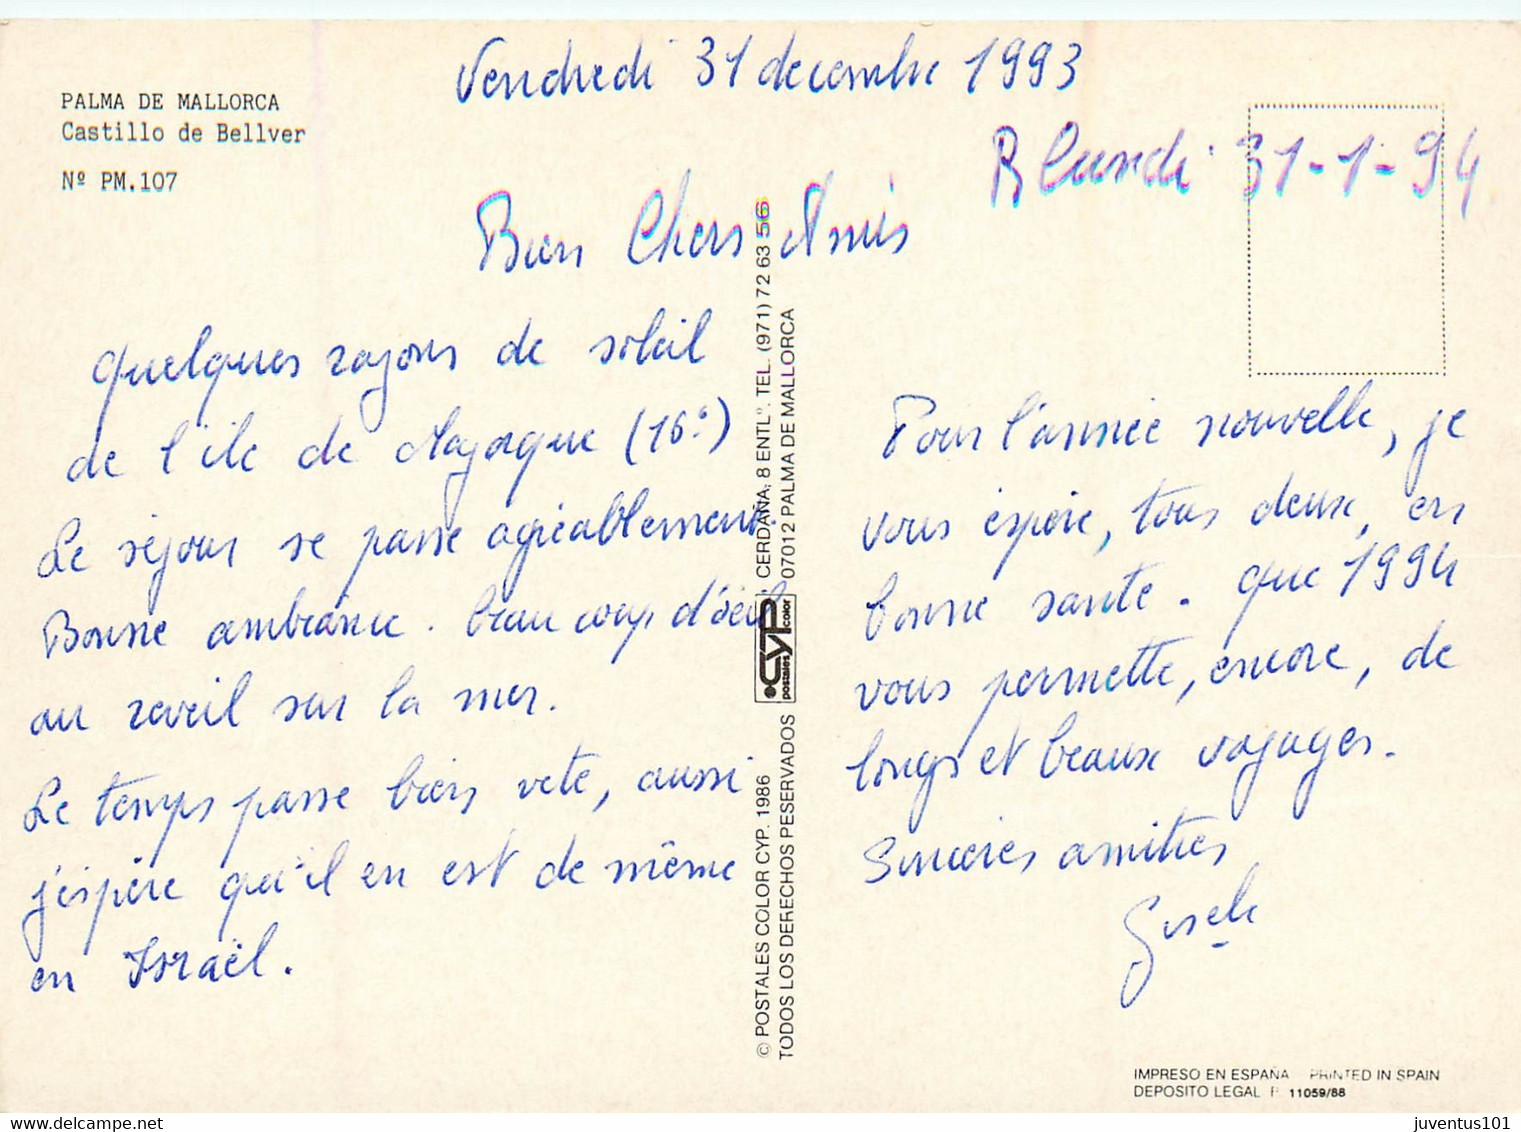 Vendredi 31 decembre 1993
PALMA DE MALLORCA
Castillo de Bellver
Nº PM.107
R Lundi 31-1-94
Bien Chers Amis
Quelques rayons de soleil
de l'ile de Majorque (16°)
Le séjour se passe agréablement.
Bonne ambiance. beau coup d'oeil
au reveil sur la mer.
Le temps passe bien vite, aussi
j'espère qu'il en est de même
en Israël.
Pour l'année nouvelle, je
vous espère, tous deux, en
bonne santé. que 1994
vous permette, encore, de
longs et beaux voyages.
Sincères amitiés
Gisele
© POSTALES COLOR CYP. 1986
CYP
postales color
CERDAÑA, 8 ENTLº. TEL. (971) 72 63 56
TODOS LOS DERECHOS PESERVADOS
07012 PALMA DE MALLORCA
IMPRESO EN ESPAÑA PRINTED IN SPAIN
DEPOSITO LEGAL 11059/88
juventus101